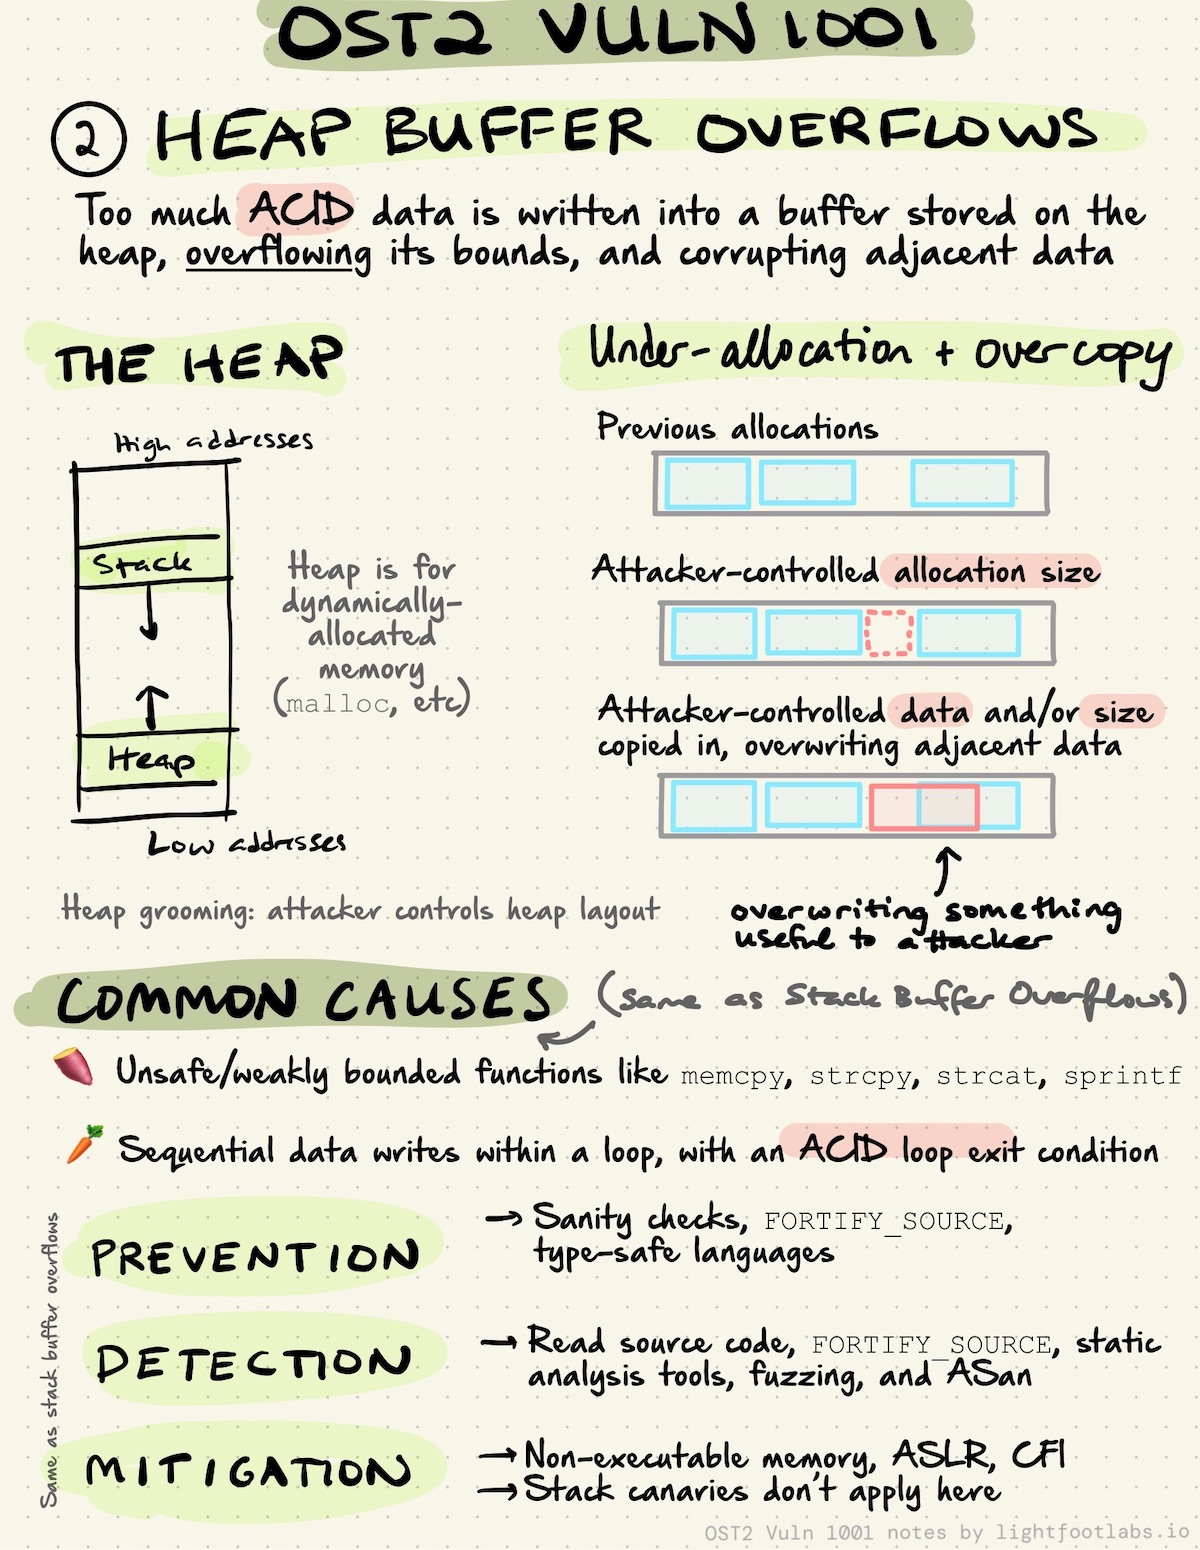 OST2 VULN 1001
2 HEAP BUFFER OVERFLOWS
Too much ACID data is written into a buffer stored on the
heap, overflowing its bounds, and corrupting adjacent data
THE HEAP
High addresses
Stack
Heap
Low addresses
Heap is for
dynamically-
allocated
memory
(malloc, etc)
Heap grooming: attacker controls heap layout
Under-allocation + overcopy
Previous allocations
Attacker-controlled allocation size
Attacker-controlled data and/or size
copied in, overwriting adjacent data
overwriting something
useful to attacker
COMMON CAUSES (same as Stack Buffer Overflows)
Unsafe/weakly bounded functions like memcpy, strcpy, strcat, sprintf
Sequential data writes within a loop, with an ACID loop exit condition
Same as stack buffer overflows
PREVENTION
→ Sanity checks, FORTIFY_SOURCE,
type-safe languages
DETECTION
→ Read source code, FORTIFY_SOURCE, static
analysis tools, fuzzing, and ASan
MITIGATION
→ Non-executable memory, ASLR, CFI
→ Stack canaries don't apply here
OST2 Vuln 1001 notes by lightfootlabs.io